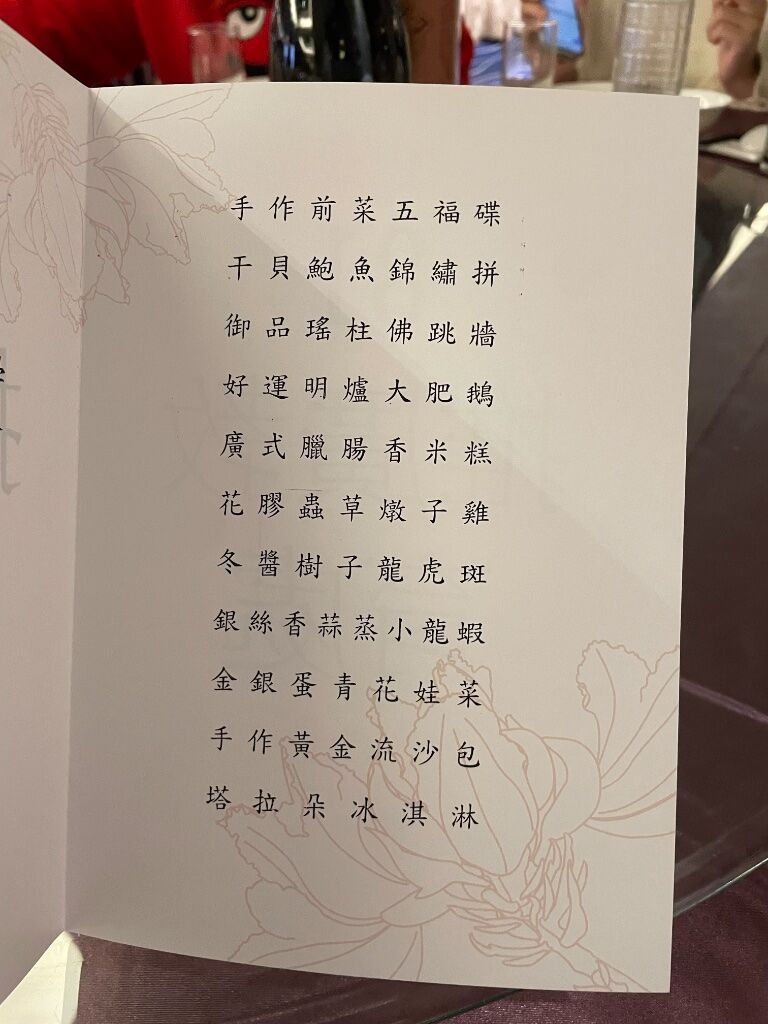 手作前菜五福碟
干貝鮑魚錦繡拼
御品瑤柱佛跳牆
好運明爐大肥鵝
廣式臘腸香米糕
花膠蟲草燉子雞
冬醬樹子龍虎斑
銀絲香蒜蒸小龍蝦
金銀蛋青花娃菜
手作黃金流沙包
塔拉朵冰淇淋